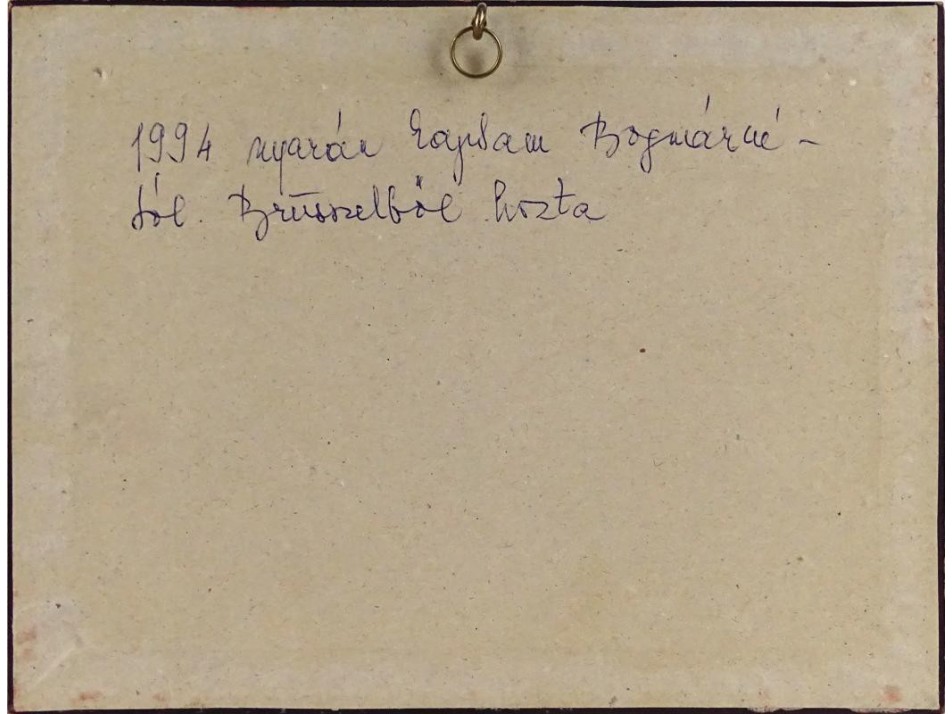 1994 nyarán kaptam Bognárné-
tól. Brüsszelből hozta